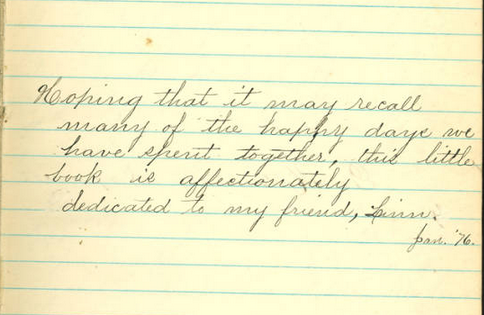 Hoping that it may recall
many of the happy days we
have spent together, this little
book is affectionately
dedicated to my friend, Linn.
Jan. '76.